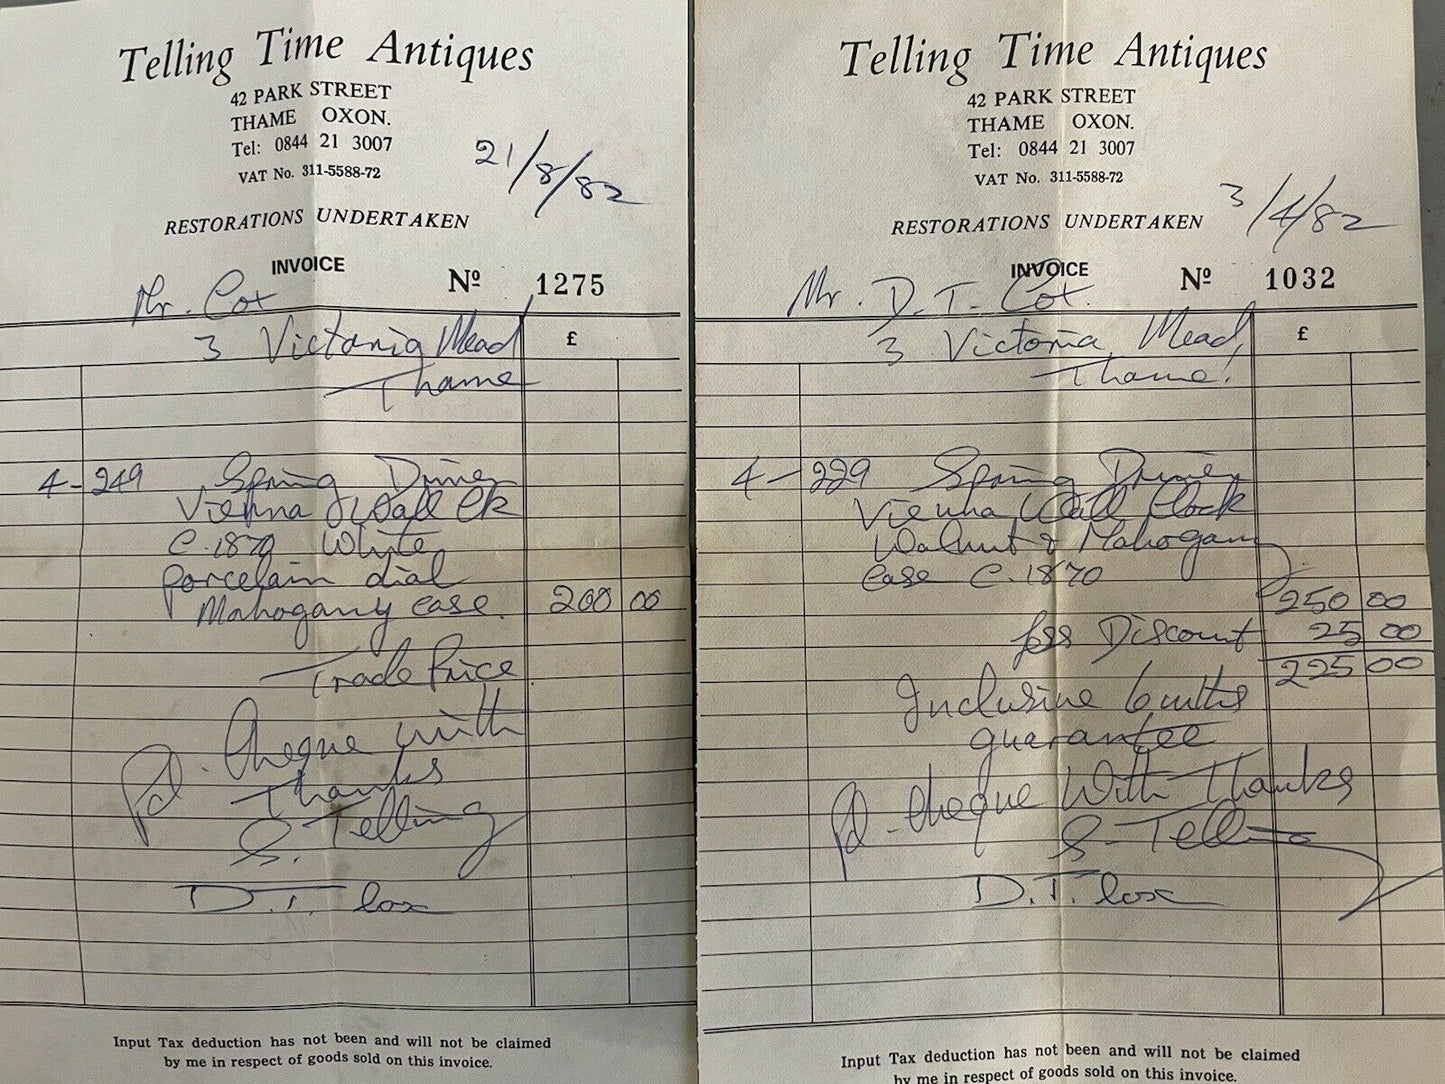 Telling Time Antiques
42 PARK STREET
THAME OXON.
Tel: 0844 21 3007
VAT No. 311-5588-72
21/8/82
RESTORATIONS UNDERTAKEN
INVOICE Nº 1275
Mr. Cox
3 Victoria Mead,
Thame
£
4-249 Spring Driven
Vienna Wall Clk
C.1870 White
porcelain dial
Mahogany case. 200 00
Trade Price
Pd. Cheque with
Thanks
S. Telling
D.T. Cox
Input Tax deduction has not been and will not be claimed
by me in respect of goods sold on this invoice.
Telling Time Antiques
42 PARK STREET
THAME OXON.
Tel: 0844 21 3007
VAT No. 311-5588-72
3/4/82
RESTORATIONS UNDERTAKEN
INVOICE Nº 1032
Mr. D.T. Cox.
3 Victoria Mead,
Thame.
£
4-229 Spring Driven
Vienna Wall Clock
Walnut & Mahogany
case C.1870
250 00
Less Discount 25 00
225 00
Inclusive 6 mths
guarantee
Pd. Cheque With Thanks
S. Telling
D.T. Cox
Input Tax deduction has not been and will not be claimed
by me in respect of goods sold on this invoice.